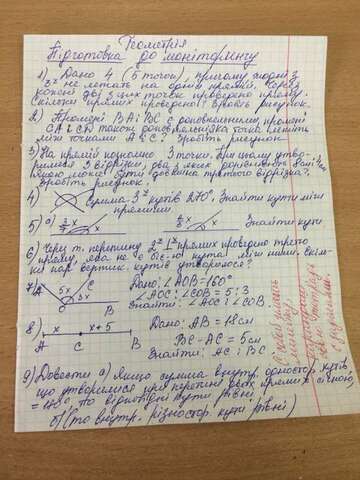 Геометрія
Підготовка до моніторингу
1) Дано 4 (5 точок), причому жодні з
3х не лежать на одній прямій. Через
кожні дві з цих точок проведено пряму.
Скільки прямих проведено? Зробіть рисунок.
2) Промені BA і BC є доповняльними, промені
CA і CD також доповняльні. Яка точка лежить
між точками A і C? Зробіть рисунок
3) На прямій позначено 3 точки. При цьому утво-
рилися 3 відрізки два з яких дорівнюють
якою може бути довжина третього відрізка?
Зробіть рисунок.
4) Сумма 3х кутів 270°. Знайти кути між
прямими.
5) а) Знайти кути
6) Через т. перетину 2х прямих проведено третю
пряму, яка не є бісю кута між ними. Скіль-
ки пар вертик. кутів утворилося?
7) A C Дано: ∠AOB = 160°
5x 3x ∠AOC : ∠COB = 5 : 3
O B Знайти: ∠AOC і ∠COB.
8) x x+5 Дано: AB = 18см
A C B BC − AC = 5см
Знайти: AC і BC
9) Довести а) якщо сумма внутр. одностор. кутів
що утворилися при перетині двох прямих січною
= 180°, то відповідні кути рівні
б) (то внутр. різностор. кути рівні)